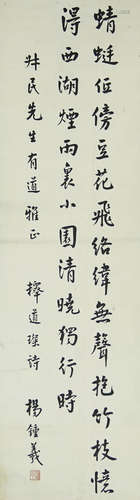 蜻蜓低傍豆花飛絡緯無聲抱竹枝憶
得西湖煙雨裏小園清曉獨行時
井民先生有道雅正
擇道琛詩 楊鍾羲